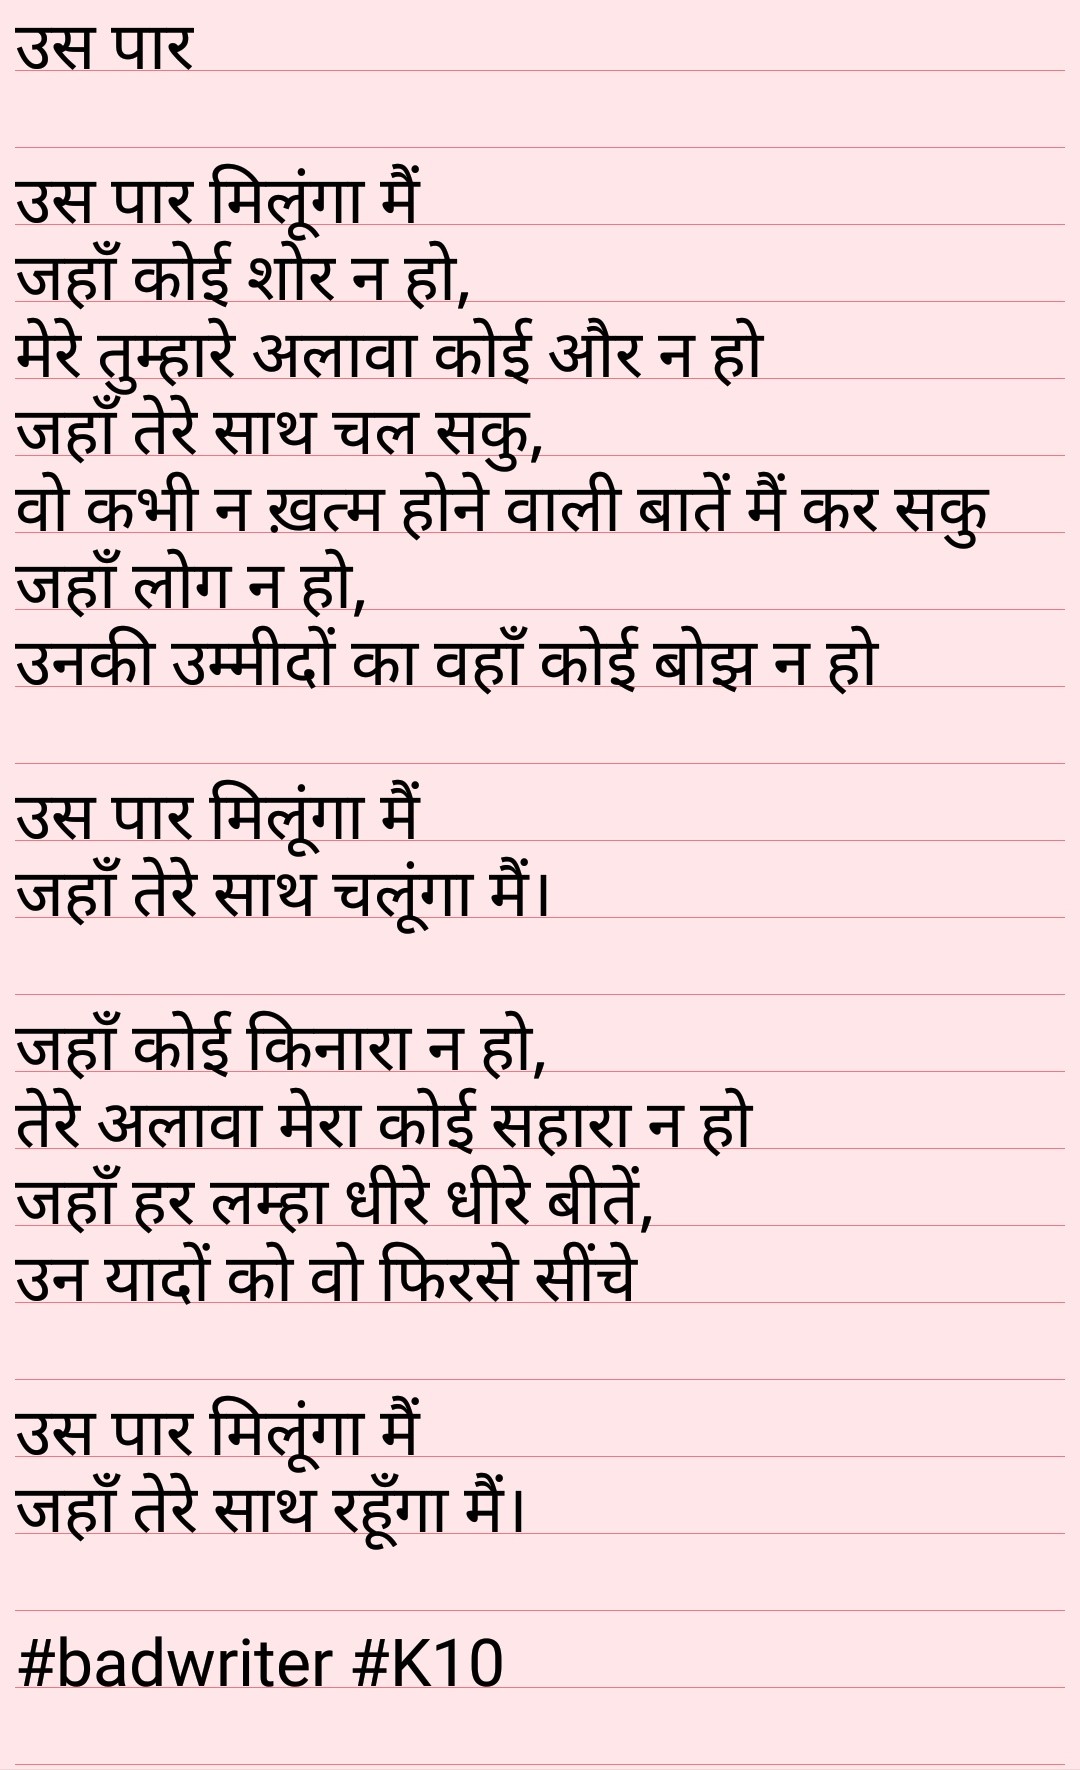 उस पार
उस पार मिलूंगा मैं
जहाँ कोई शोर न हो,
मेरे तुम्हारे अलावा कोई और न हो
जहाँ तेरे साथ चल सकु,
वो कभी न ख़त्म होने वाली बातें मैं कर सकु
जहाँ लोग न हो,
उनकी उम्मीदों का वहाँ कोई बोझ न हो
उस पार मिलूंगा मैं
जहाँ तेरे साथ चलूंगा मैं।
जहाँ कोई किनारा न हो,
तेरे अलावा मेरा कोई सहारा न हो
जहाँ हर लम्हा धीरे धीरे बीतें,
उन यादों को वो फिरसे सींचे
उस पार मिलूंगा मैं
जहाँ तेरे साथ रहूँगा मैं।
#badwriter #K10